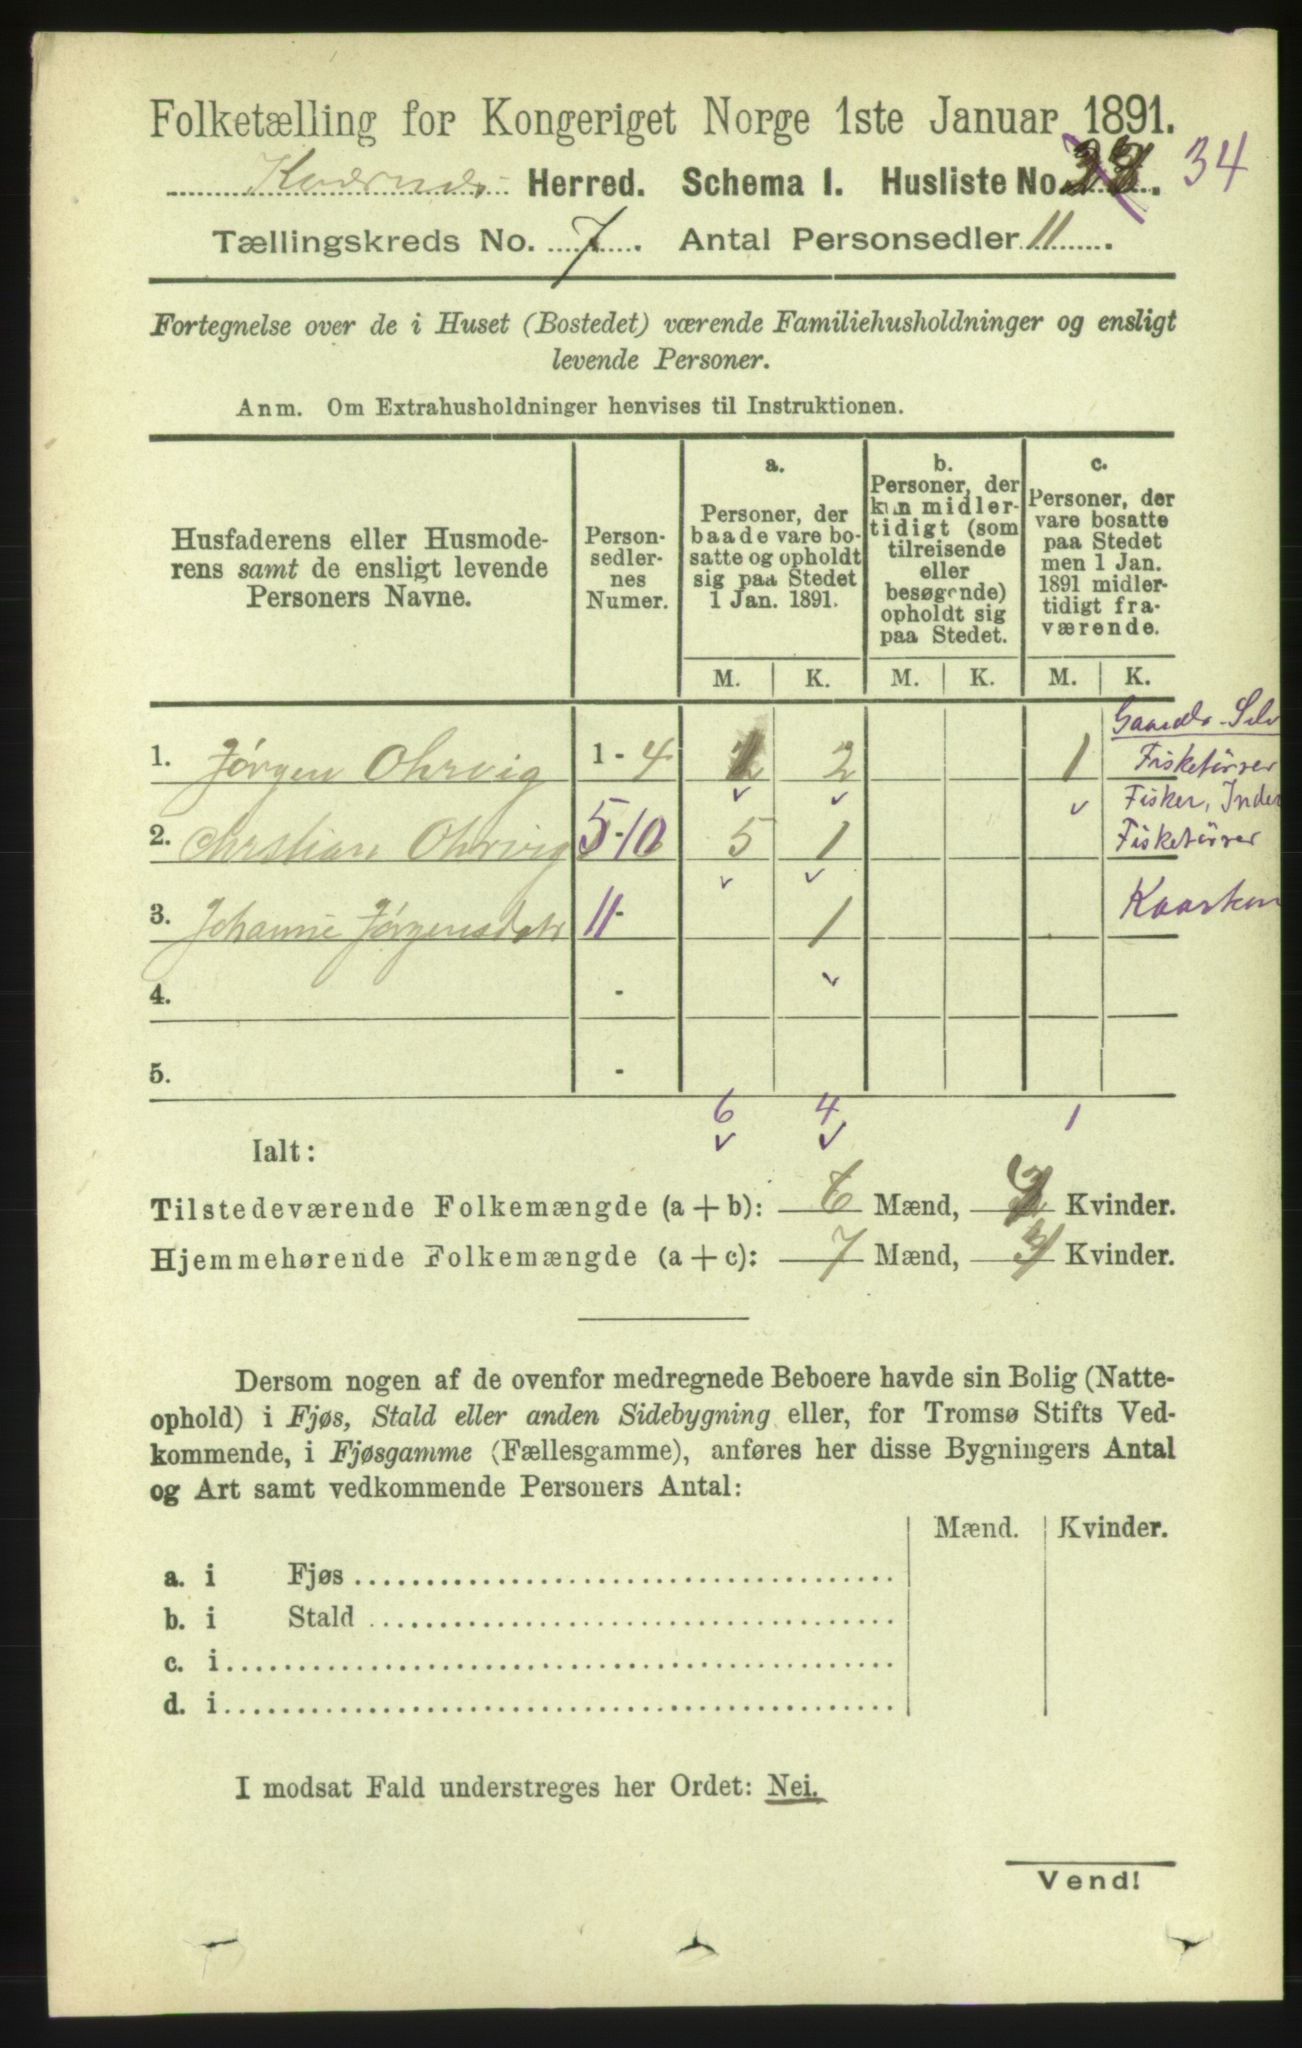 Folketælling for Kongeriget Norge 1ste Januar 1891.
Kværnes Herred. Schema I. Husliste No. 34
Tællingskreds No. 7. Antal Personsedler 11.
Fortegnelse over de i Huset (Bostedet) værende Familiehusholdninger og ensligt
levende Personer.
Anm. Om Extrahusholdninger henvises til Instruktionen.
Husfaderens eller Husmode-
rens samt de ensligt levende
Personers Navne.
Person-
sedler-
nes
Numer.
a.
Personer, der
baade vare bo-
satte og opholdt
sig paa Stedet
1 Jan. 1891.
b.
Personer, der
kun midler-
tidigt (som
tilreisende
eller
besøgende)
opholdt sig
paa Stedet.
c.
Personer, der
vare bosatte
paa Stedet
men 1 Jan.
1891 midler-
tidigt fra-
værende.
M. K. M. K. M. K.
Gaardb. Selv
1. Jørgen Ohrvig 1 - 4 2 1 Fisketørrer
Fisker, Inder
2. Chrstian Ohrvig 5-10 5 1 Fisketørrer
3. Johanne Jørgensdatr 11- 1
4. -
5. -
6 4 1
Ialt:
Tilstedeværende Folkemængde (a + b): 6 Mænd, Kvinder.
Hjemmehørende Folkemængde (a + c): 7 Mænd, Kvinder.
Dersom nogen af de ovenfor medregnede Beboere havde sin Bolig (Natte-
ophold) i Fjøs, Stald eller anden Sidebygning eller, for Tromsø Stifts Ved-
kommende, i Fjøsgamme (Fællesgamme), anføres her disse Bygningers Antal
og Art samt vedkommende Personers Antal:
Mænd. Kvinder.
a. i Fjøs
b. i Stald
c. i
d. i
I modsat Fald understreges her Ordet: Nei.
Vend!